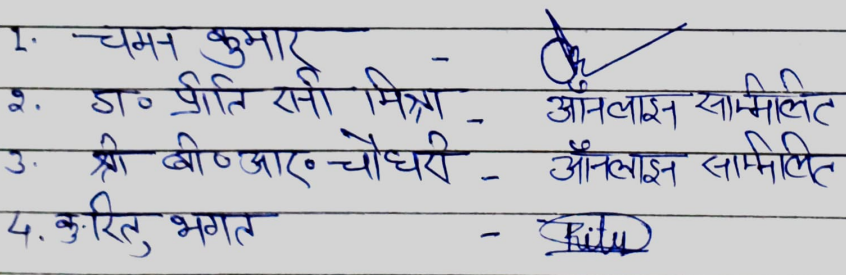 1. चमन कुमार -
2. डा० प्रीति रानी मिश्रा - ऑनलाइन सम्मिलित
3. श्री बी०आर० चौधरी - ऑनलाइन सम्मिलित
4. कु. रितु भगत - Ritu